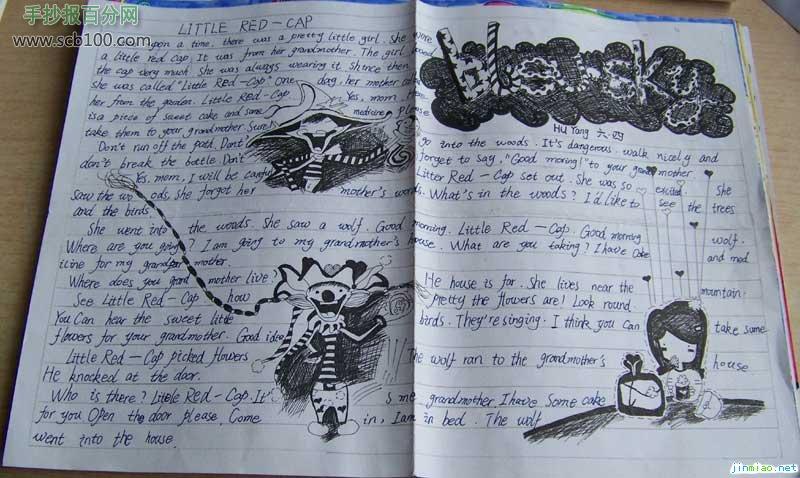 手抄报百分网
www.scb100.com
LITTLE RED-CAP
upon a time, there was a pretty little girl. She wore
a little red cap. It was from her grandmother. The girl loved
the cap very much. She was always wearing it. Shince then
she was called "Little Red-Cap" One day, her mother
her from the garden. Little Red-Cap Yes, mom.
is a piece of sweet cake and some medicine, please
take them to your grandmother. Sure!
Hu Yang 六.四
Don't run off the path. Don't go into the woods. It's dangerous. walk nicely and
don't break the bottle. Don't forget to say, "Good moring!" to your grandmother
Yes, mom, I will be careful Litter Red-Cap set out. She was so excited. She
saw the wo ods, she forgot her mother's words. What's in the woods? I'd like to see the trees
and the birds.
She went into the woods. She saw a wolf. Good morning. Little Red-Cap. Good morning wolf.
Where are you going? I am going to my grandmother's house. What are you taking? I have cake and med
icine for my grandmother.
Where does you grand mother live? He house is far. She lives near the mountain.
See Little Red-Cap how pretty the flowers are! Look round
You Can hear the sweet little birds. They're singing. I think you can take some
flowers for your grandmother. Good idea
Little Red-Cap picked flowers The wolf ran to the grandmother's house
He knocked at the door.
Who is there? Little Red-Cap. It' s me, grandmother. I have Some cake
for you Open the door please. Come in, I am in bed. The wolf
went into the house.
jinmiao.net